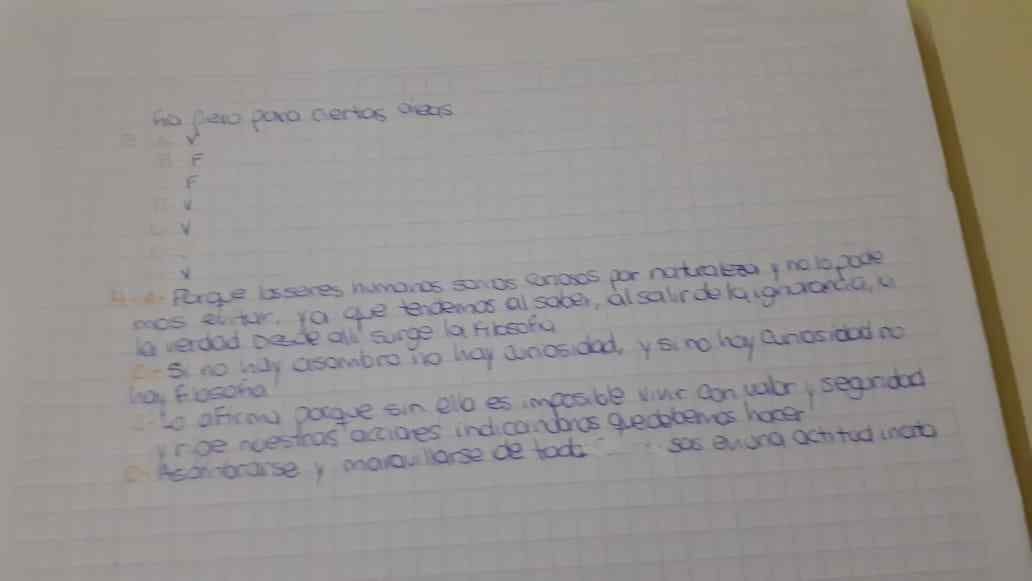 no pero para ciertas áreas
V
F
F
V
V
V
4-a- Porque los seres humanos somos curiosos por naturaleza y no lo pode
mos evitar, ya que tendemos al saber, al salir de la ignorancia, a
la verdad Desde allí surge la filosofía
- Si no hay asombro no hay curiosidad, y si no hay curiosidad no
hay filosofía
- Lo afirma porque sin ella es imposible vivir con valor y seguridad
y rige nuestras acciones indicandonos que debemos hacer
- Asombrarse y maravillarse de todas sas es una actitud inata